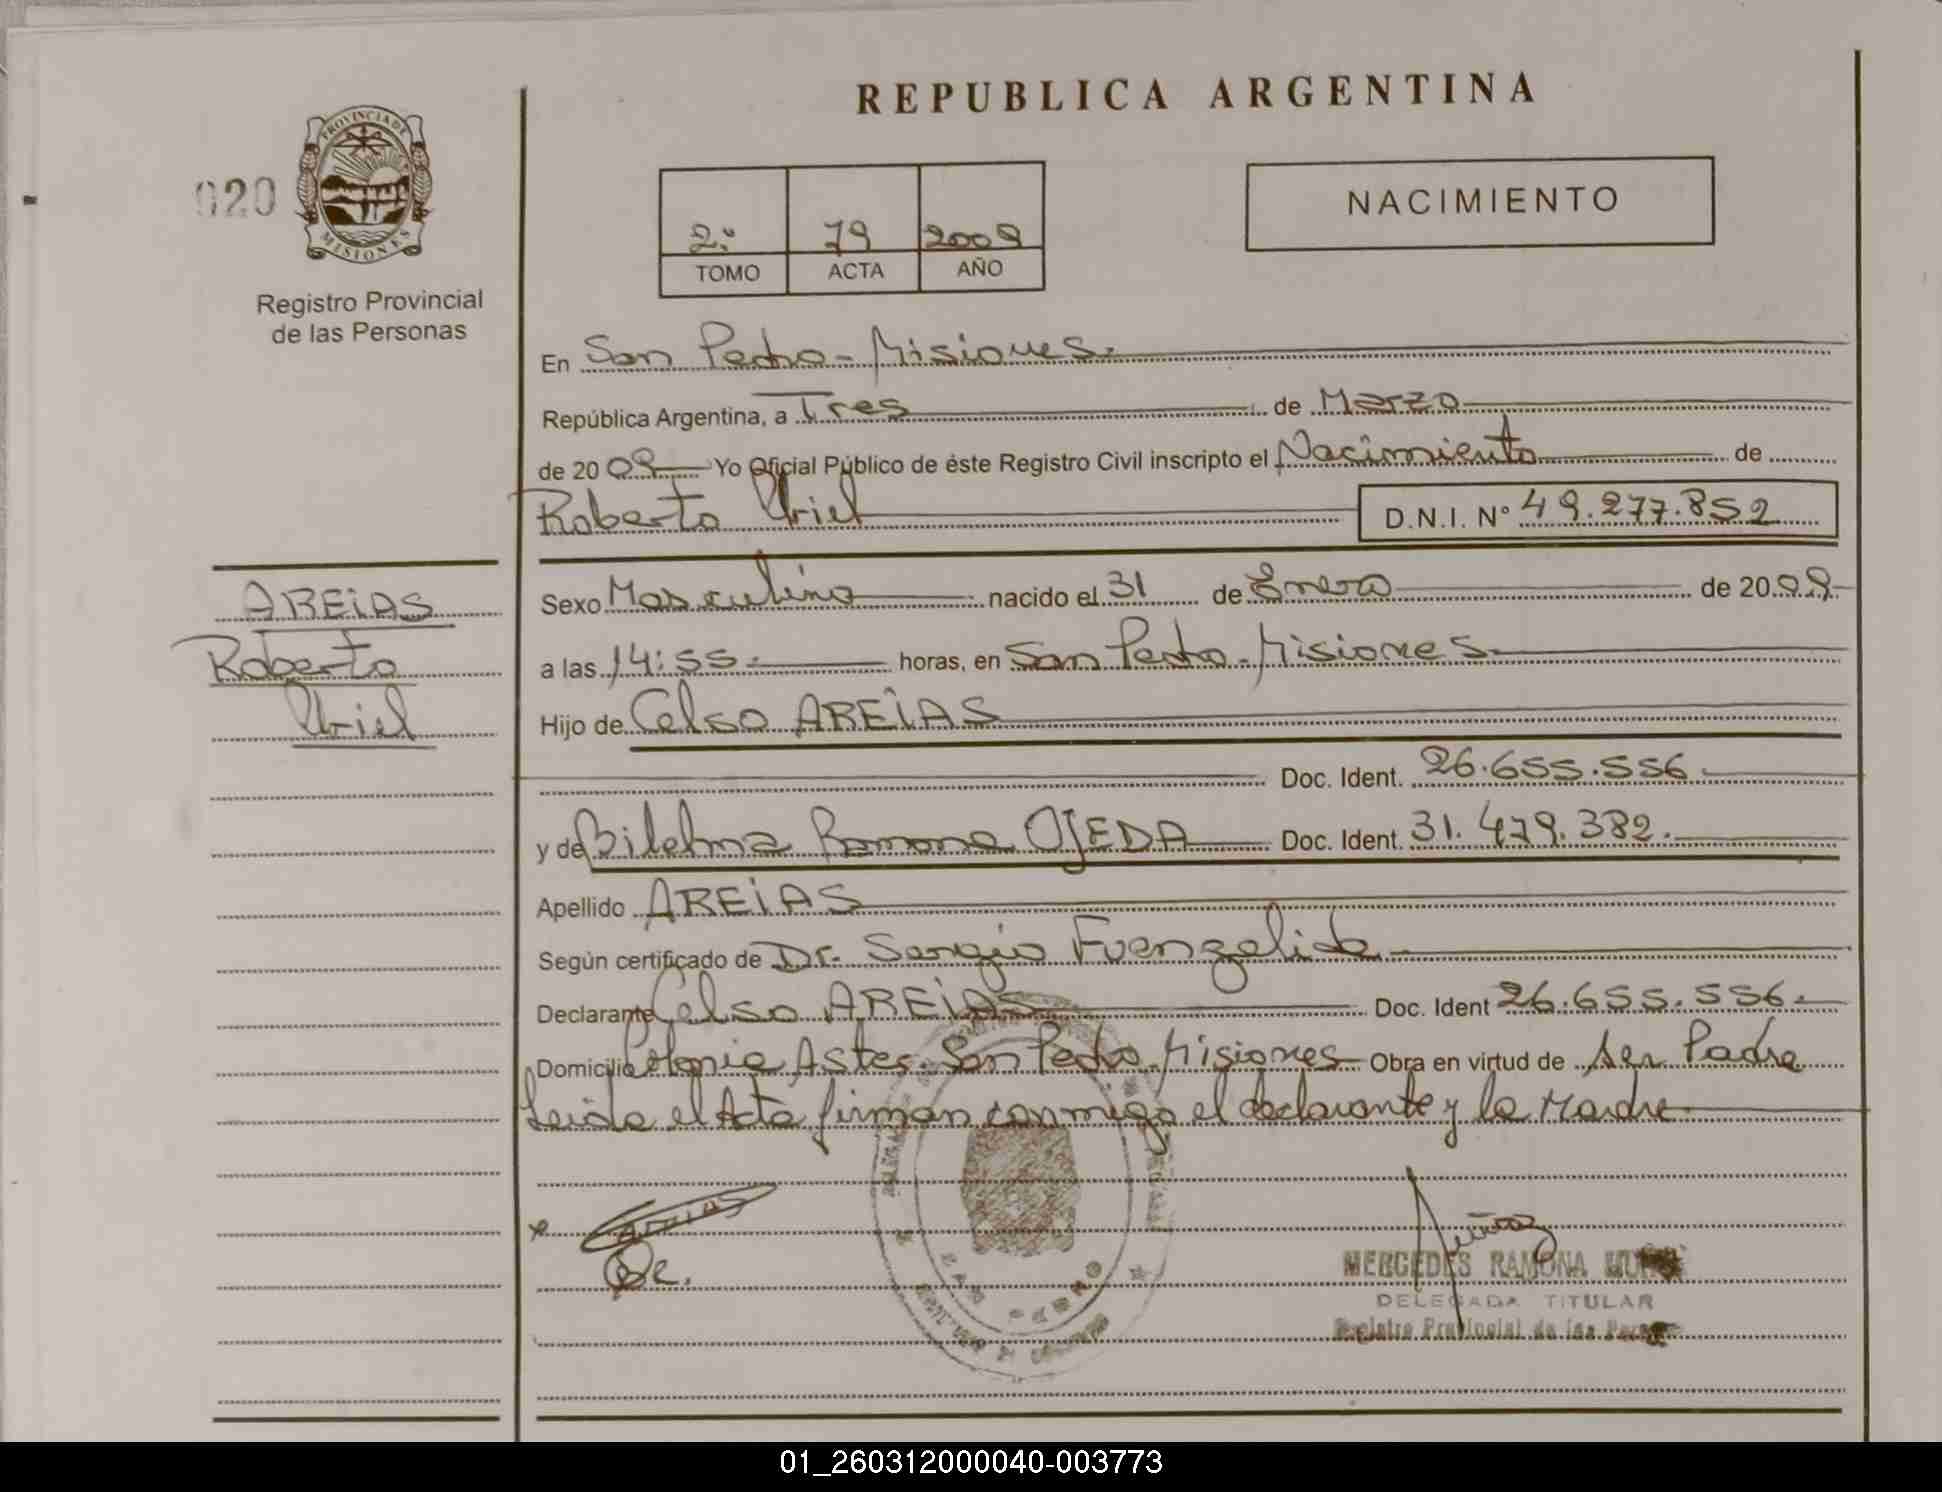 REPUBLICA ARGENTINA
020
PROVINCIA DE
MISIONES
Registro Provincial
de las Personas
2º 79 2009
TOMO ACTA AÑO
NACIMIENTO
En San Pedro - Misiones.
República Argentina, a Tres de Marzo
de 20 09 Yo Oficial Público de éste Registro Civil inscripto el Nacimiento de
Roberto Uriel D.N.I. Nº 49.277.852
AREiAS
Roberto
Uriel
Sexo Masculino nacido el 31 de Enero de 20 09
a las 14:55. horas, en San Pedro - Misiones
Hijo de Celso AREiAS
Doc. Ident. 26.655.556
y de Bilelma Ramona OJEDA Doc. Ident. 31.479.382.
Apellido AREiAS
Según certificado de Dr. Sergio Fuenzalida
Declarante Celso AREiAS Doc. Ident 26.655.556.
Domicilio Colonia Aster San Pedro - Misiones Obra en virtud de ser Padre
Leida el Acta firman conmigo el declarante y la Madre
MERCEDES RAMONA
DELEGADA TITULAR
Registro Provincial de las
01_260312000040-003773